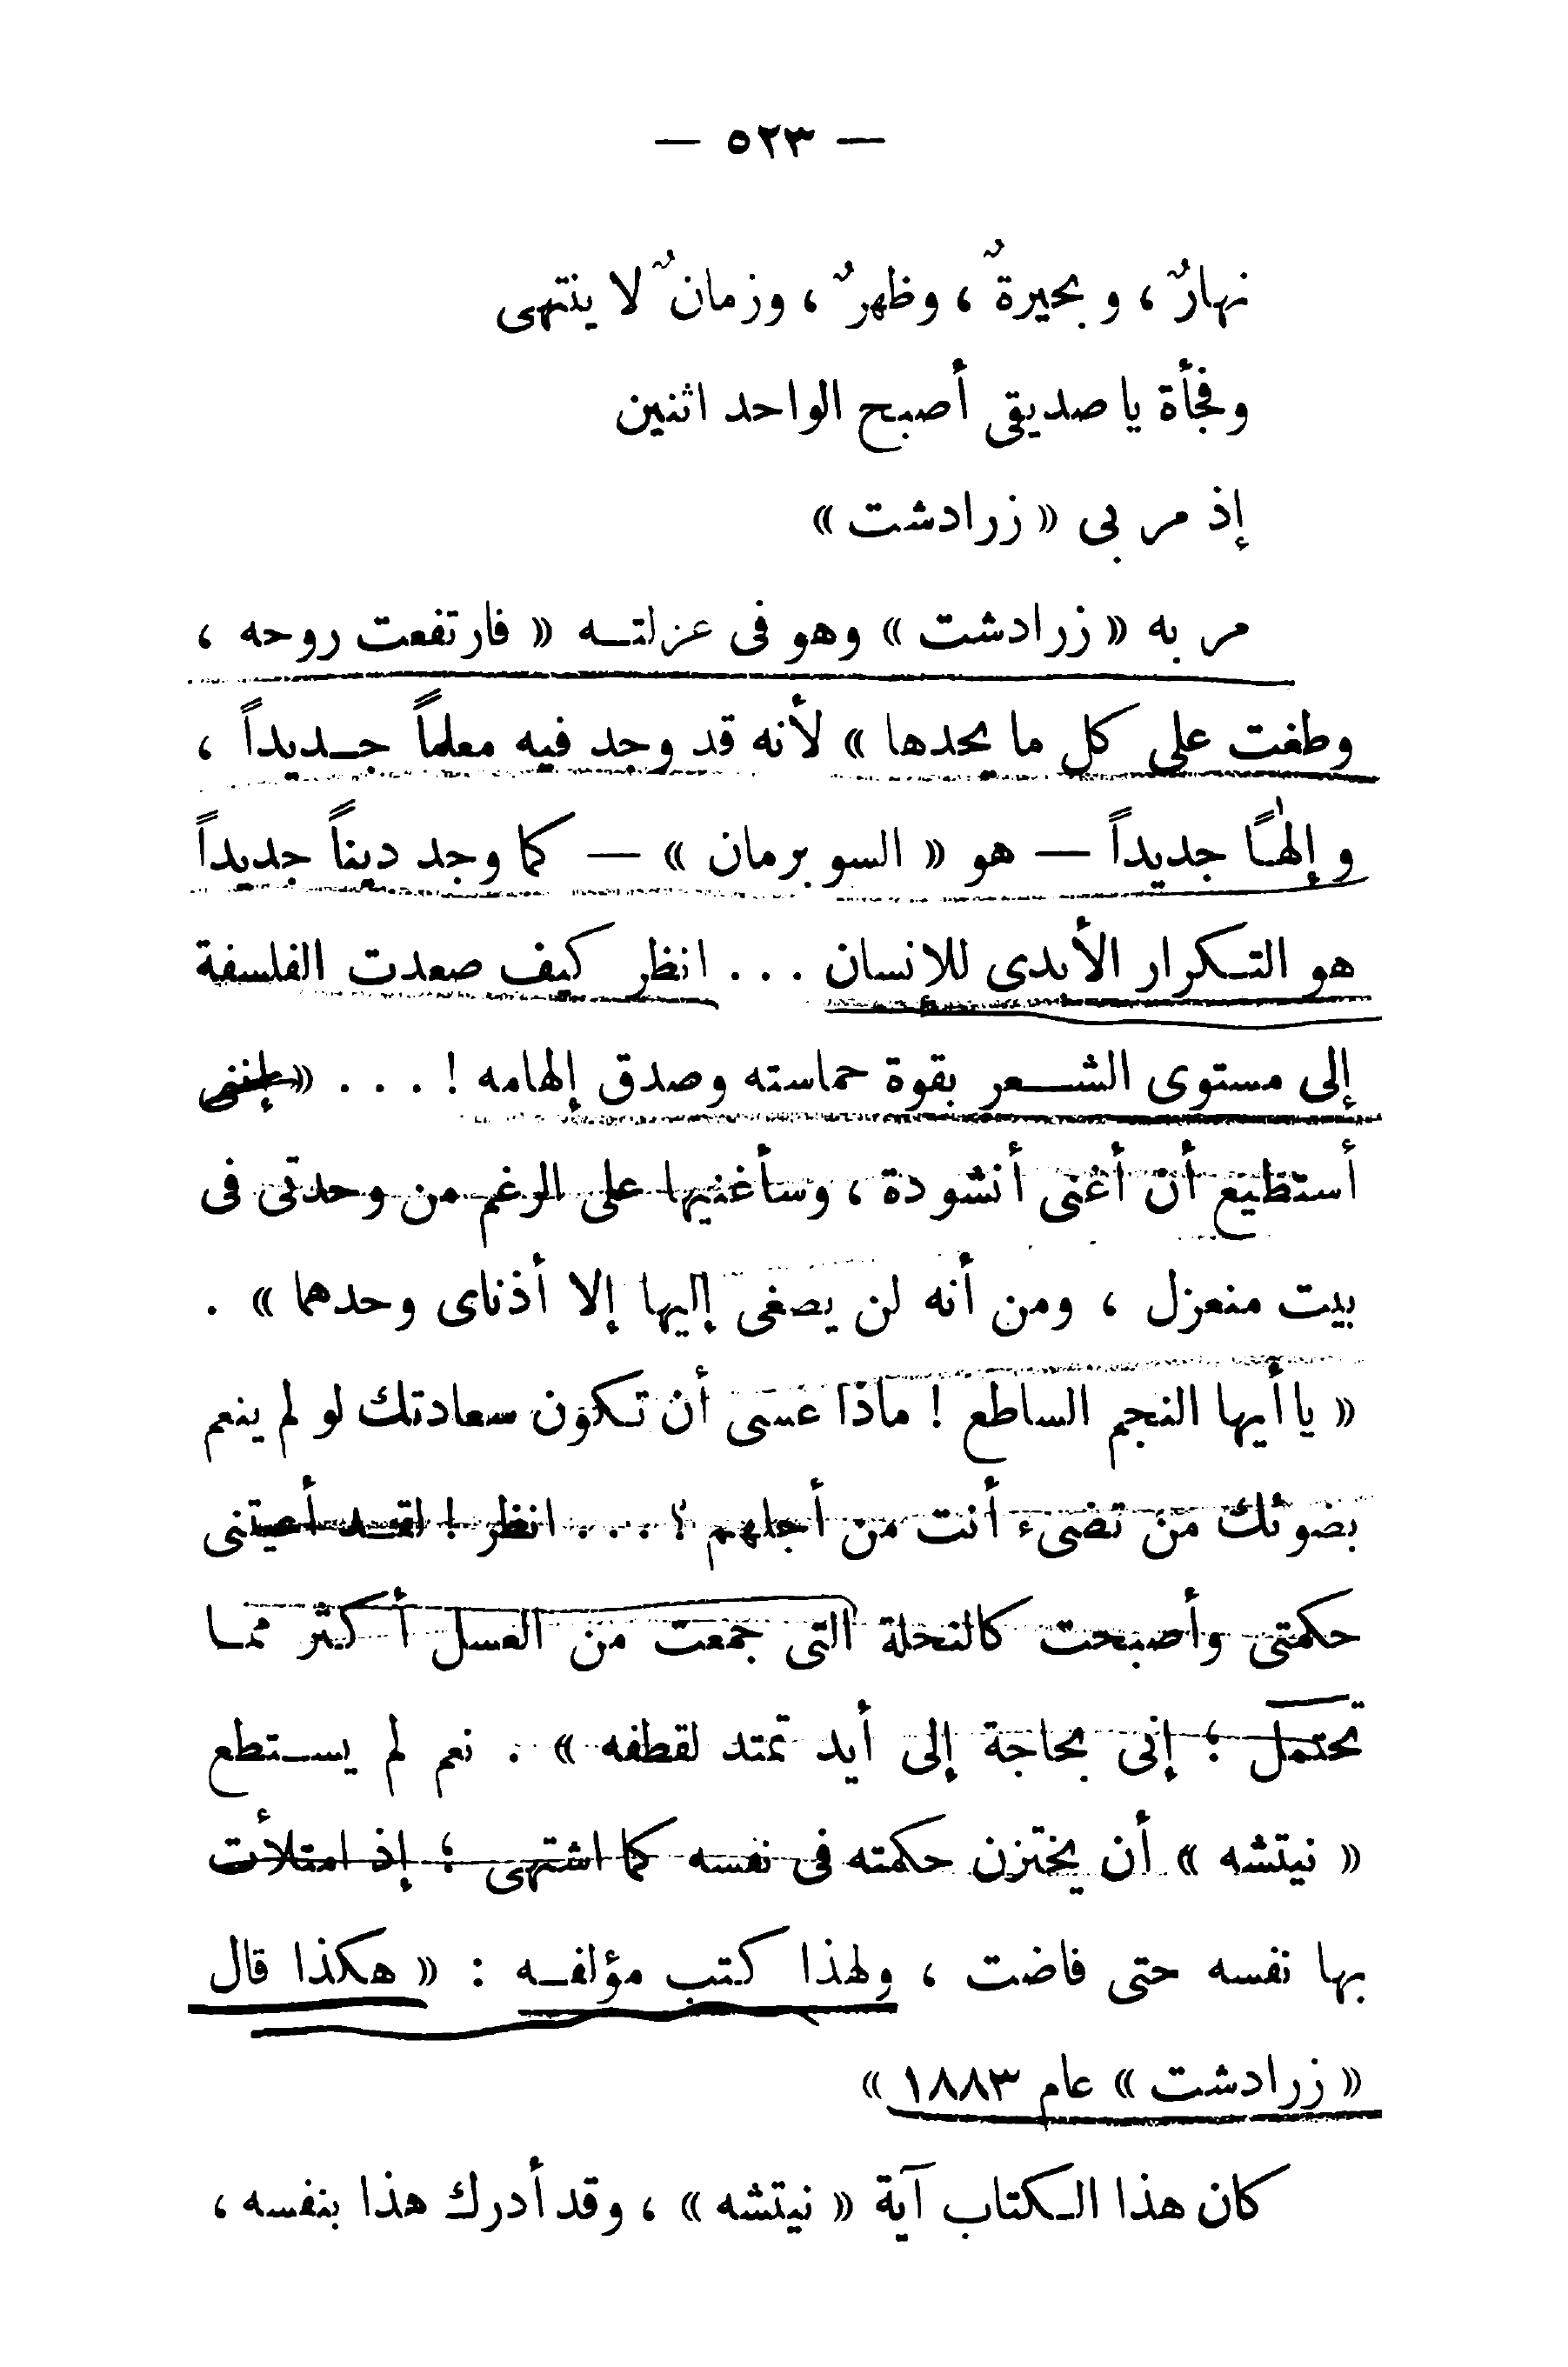 — ٥٢٣ —
نهارٌ ، و بحيرةٌ ، وظهرٌ ، وزمانٌ لا ينتهى
وفجأة يا صديقى أصبح الواحد اثنين
إذ مر بى « زرادشت »
مر به « زرادشت » وهو فى عزلتـه « فارتفعت روحه ،
وطغت على كل ما يحدها » لأنه قد وجد فيه معلماً جـديداً ،
و إلٰهـًا جديداً — هو « السوبرمان » — كما وجد ديناً جديداً
هو التـكرار الأبدى للانسان . . . انظر كيف صعدت الفلسفة
إلى مستوى الشـعر بقوة حماسته وصدق إلهامه ! . . . « إننى
أستطيع أن أغنى أنشودة ، وسأغنيها على الرغم من وحدتى فى
بيت منعزل ، ومن أنه لن يصغى إليها إلا أذناى وحدهما » .
« يا أيها النجم الساطع ! ماذا عسى أن تـكون سعادتك لو لم ينعم
بضوئك من تضىء أنت من أجلهم ؟ . . . انظر ! لقـد أعيتنى
حكمتى وأصبحت كالنحلة التى جمعت من العسل أكثر ممـا
تحتمل ؛ إنى بحاجة إلى أيد تمتد لقطفه » . نعم لم يسـتطع
« نيتشه » أن يختزن حكمته فى نفسه كما اشتهى ؛ إذ امتلأت
بها نفسه حتى فاضت ، ولهذا كتب مؤلفـه : « هكذا قال
« زرادشت » عام ١٨٨٣ »
كان هذا الـكتاب آية « نيتشه » ، وقد أدرك هذا بنفسه ،